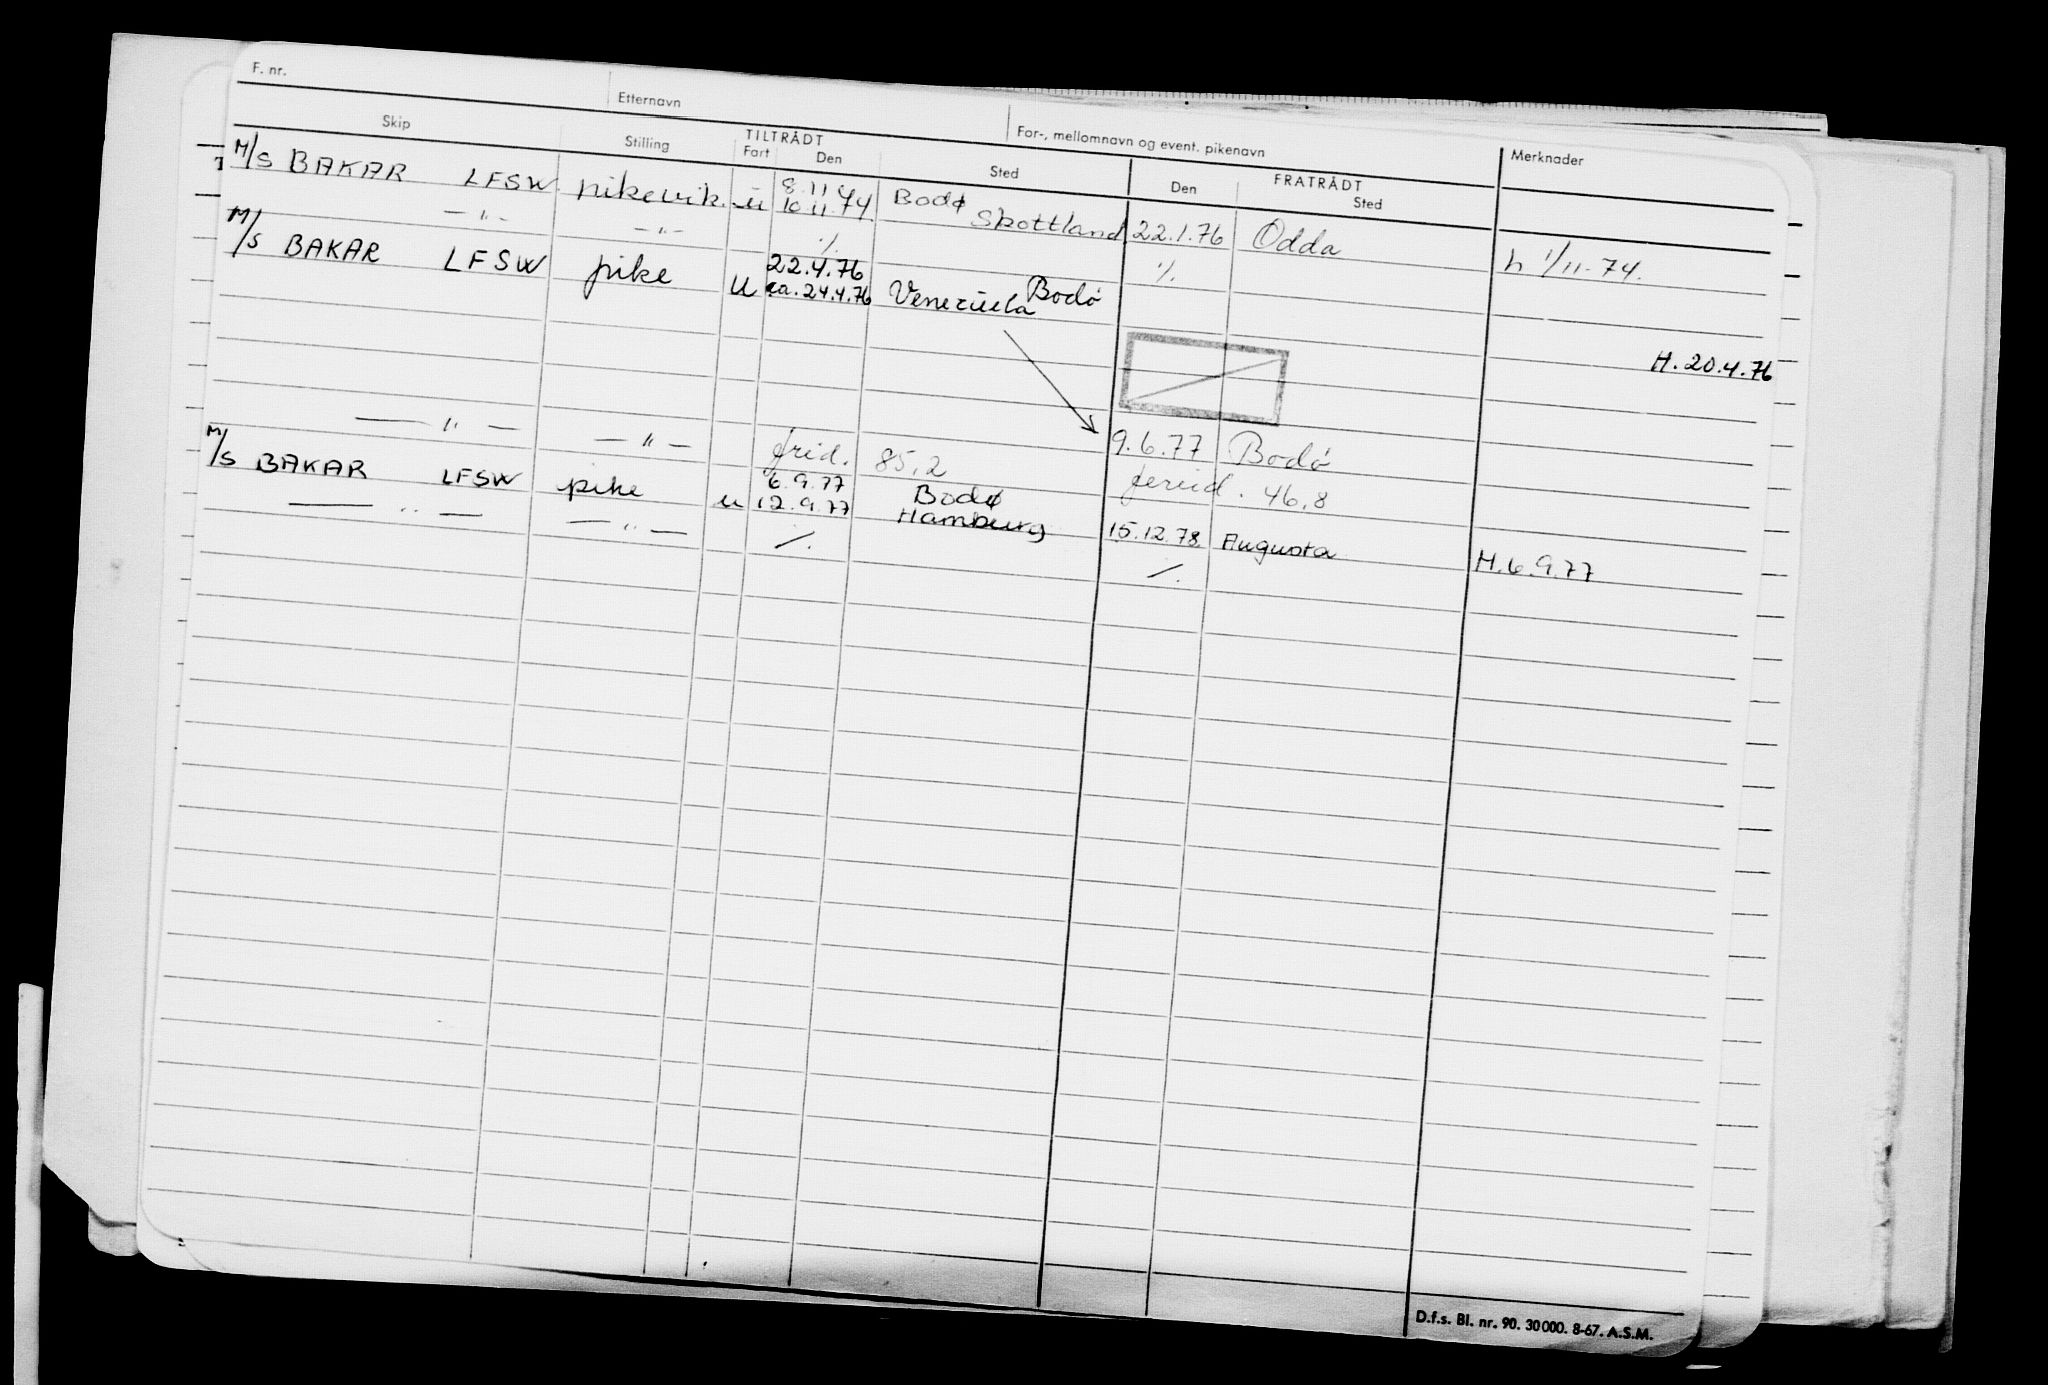 F. nr. Etternavn For-, mellomnavn og event. pikenavn
Skip Stilling TILTRÅDT FRATRÅDT Merknader
Fart Den Sted Den Sted
M/S BAKAR LFSW pikevik. u 8.11 Bodø
10.11.74 Skottland 22.1.76 Odda h 1/11-74.
— " — — " — ⁒ ⁒
M/S BAKAR LFSW pike 22.4.76 Bodø
u ca. 24.4.76 Venezuela
H. 20.4.76
— " — — " — frid. 85,2 9.6.77 Bodø
M/S BAKAR LFSW pike 6.9.77 Bodø fereid. 46,8
u 12.9.77 Hamburg 15.12.78 Augusta H. 6.9.77
— " — — " — ⁒ ⁒
D.f.s. Bl. nr. 90. 30000. 8-67. A.S.M.